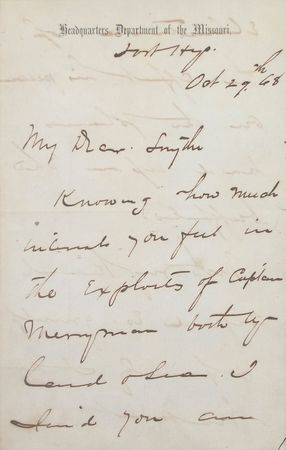 Headquarters Department of the Missouri.
Fort Hays.
Oct 29th 68
My Dear Smythe
Knowing how much
interest you feel in
the Exploits of Captain
Merryman both by
land & sea. I
send you